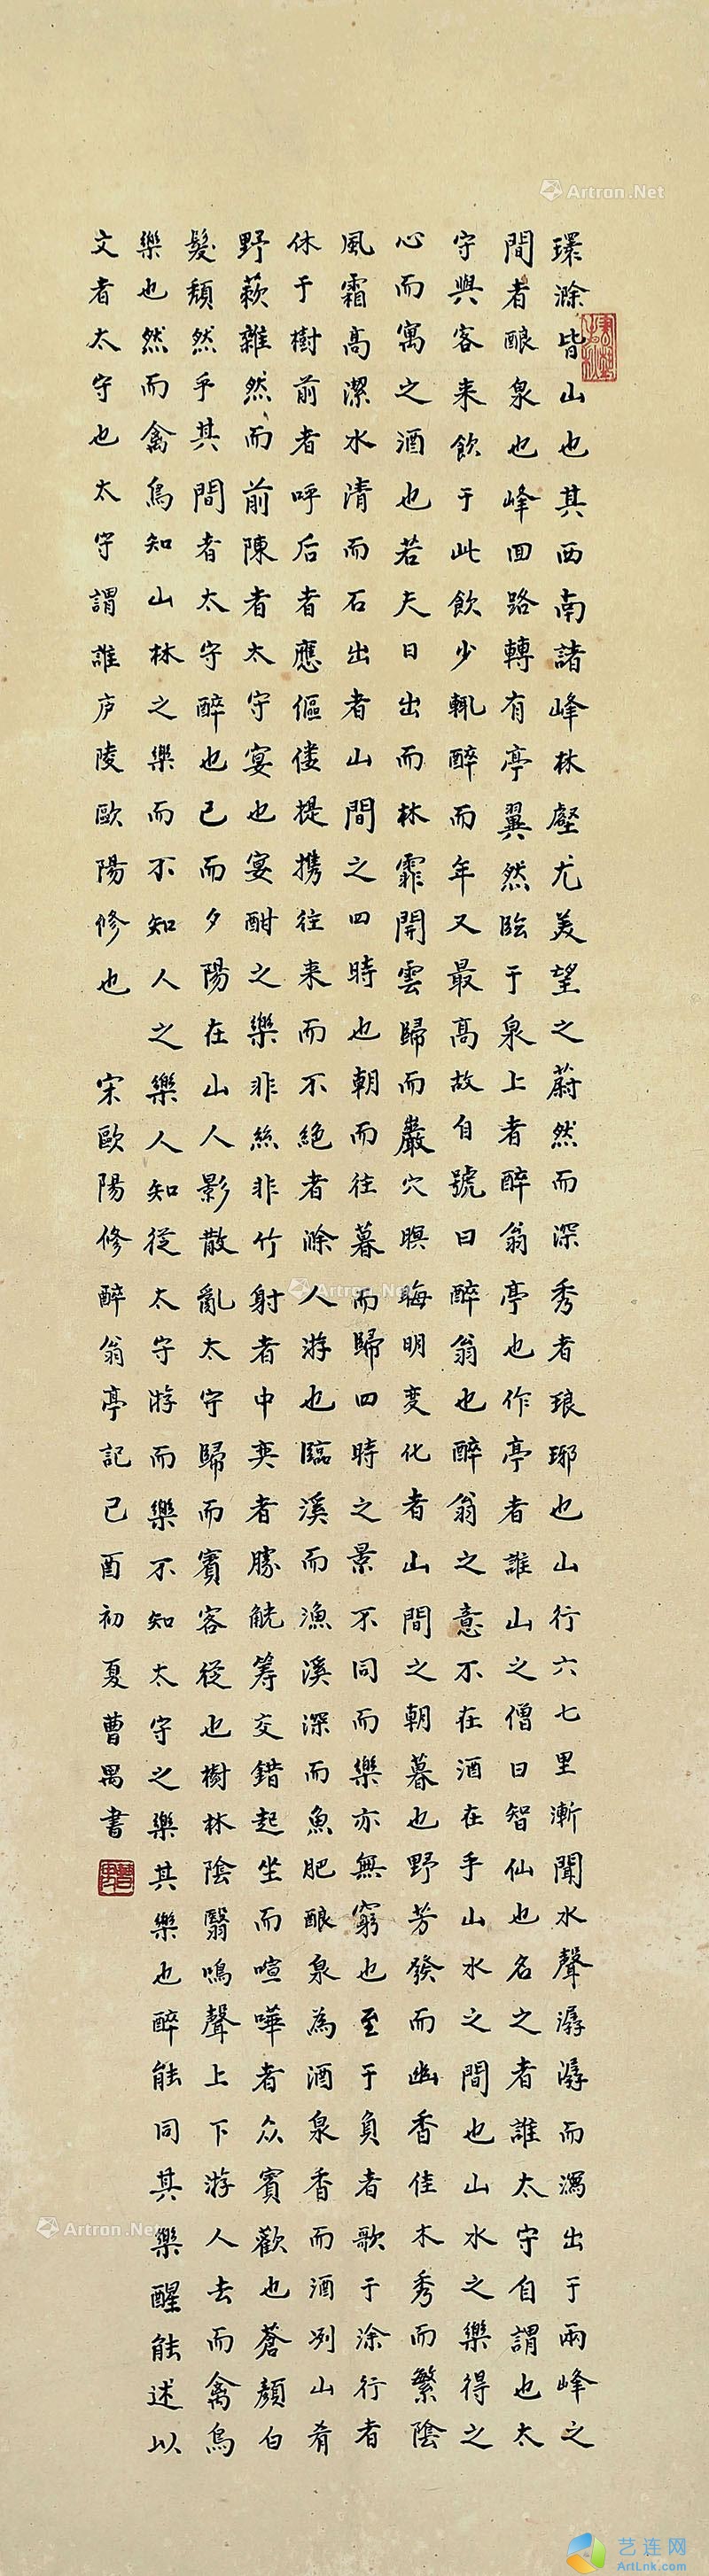 環滁皆山也其西南諸峰林壑尤美望之蔚然而深秀者琅琊也山行六七里漸聞水聲潺潺而瀉出于兩峰之
間者酿泉也峰回路轉有亭翼然臨于泉上者醉翁亭也作亭者誰山之僧曰智仙也名之者誰太守自謂也太
守與客来飲于此飲少輒醉而年又最高故自號曰醉翁也醉翁之意不在酒在乎山水之間也山水之樂得之
心而寓之酒也若夫日出而林霏開雲歸而巖穴暝晦明变化者山間之朝暮也野芳發而幽香佳木秀而繁陰
風霜高潔水清而石出者山間之四時也朝而往暮而歸四時之景不同而樂亦無窮也至于負者歌于涂行者
休于樹前者呼后者應傴僂提携往来而不絶者滁人游也臨溪而漁溪深而魚肥酿泉為酒泉香而酒冽山肴
野蔌雜然而前陳者太守宴也宴酣之樂非絲非竹射者中奕者勝觥筹交錯起坐而喧嘩者众賓歡也蒼顏白
髮頹然乎其間者太守醉也已而夕陽在山人影散亂太守歸而賓客從也樹林陰翳鳴聲上下游人去而禽鳥
樂也然而禽鳥知山林之樂而不知人之樂人知從太守游而樂不知太守之樂其樂也醉能同其樂醒能述以
文者太守也太守謂誰庐陵歐陽修也 宋歐陽修醉翁亭記己酉初夏曹禺書
Artron.Net
Artron.Net
Artron.Net
艺连网
ArtLnk.com